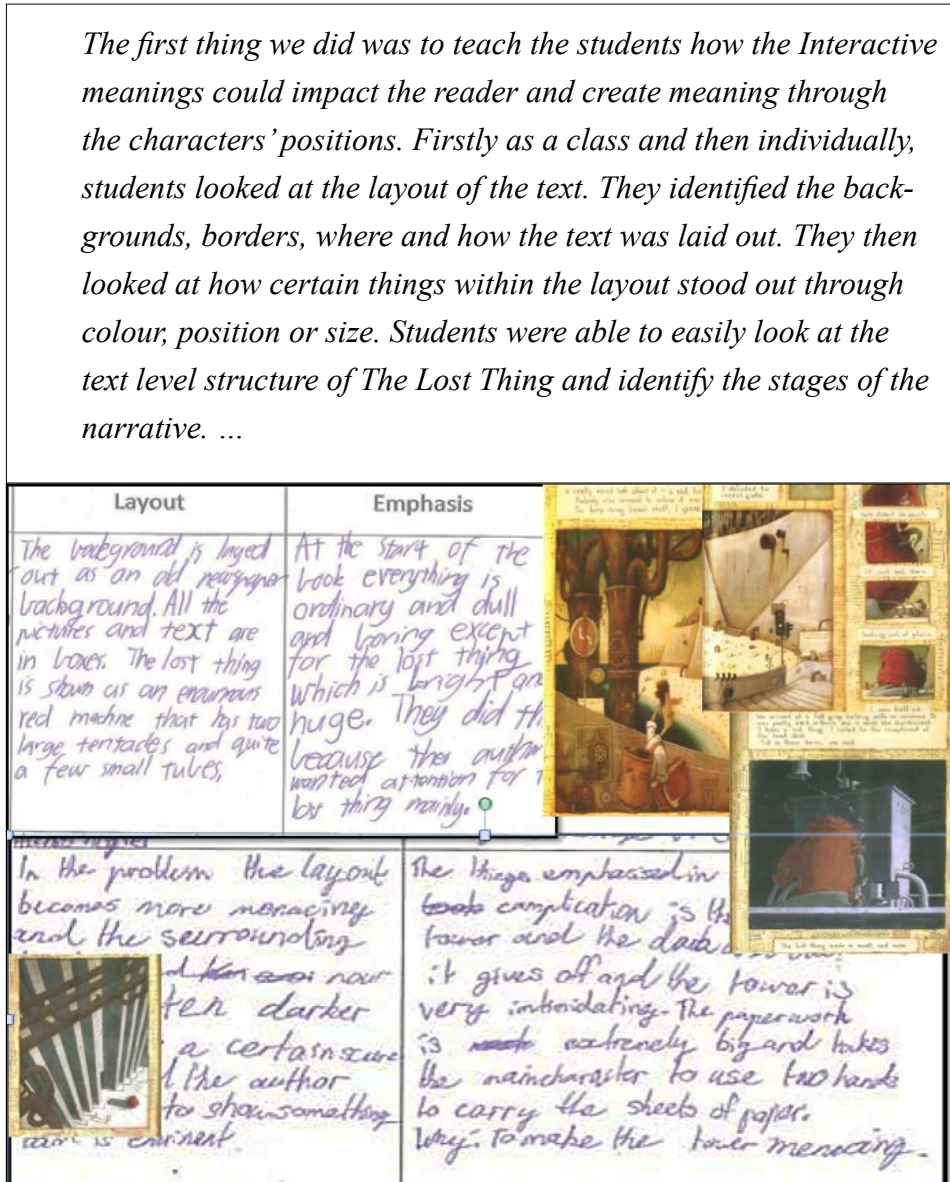 The first thing we did was to teach the students how the Interactive
meanings could impact the reader and create meaning through
the characters' positions. Firstly as a class and then individually,
students looked at the layout of the text. They identified the back-
grounds, borders, where and how the text was laid out. They then
looked at how certain things within the layout stood out through
colour, position or size. Students were able to easily look at the
text level structure of The Lost Thing and identify the stages of the
narrative. …
Layout
The background is layed
out as an old newspaper
background. All the
pictures and text are
in boxes. The lost thing
is shown as an
red machine that has two
large tentacles and quite
a few small tubes.
Emphasis
At the start of the
book everything is
ordinary and dull
and boring except
for the lost thing
which is bright an
huge. They did th
because the author
wanted attention for t
lost thing mainly.
In the problem the layout
becomes more menacing
and the surrounding
now
ten darker
a certain scure
the author
to show something
is eminent.
The things emphasised in
complication is th
tower and the dark
it gives off and the tower is
very intimidating. The paperwork
is extremely big and takes
the maincharacter to use two hands
to carry the sheets of paper.
Why: To make the tower menacing.
The lost thing made a small, sad noise.